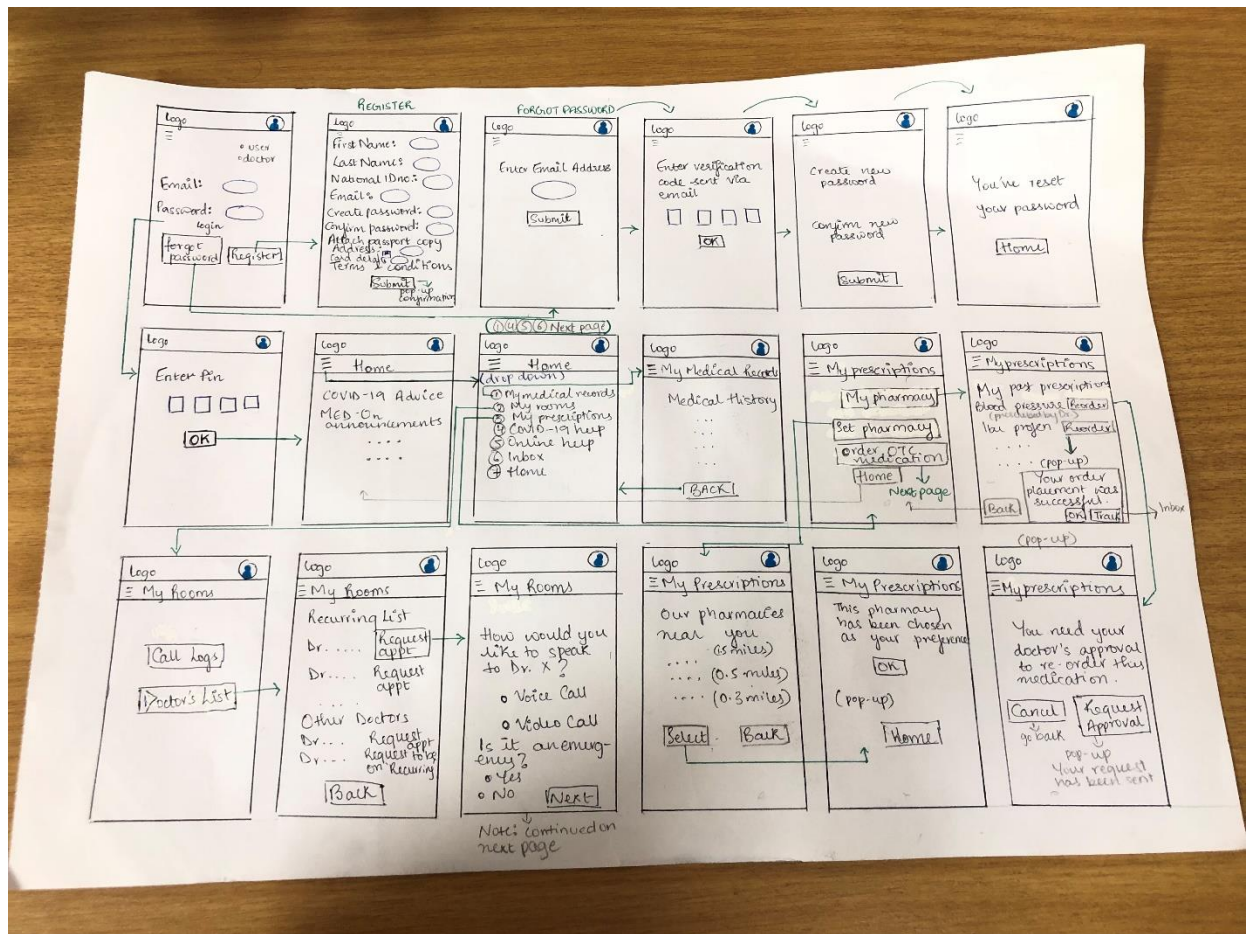 REGISTER
FORGOT PASSWORD
Logo
user
doctor
Email:
Password:
login
forgot password
Register
Logo
First Name:
Last Name:
National ID no:
Email:
Create password:
Confirm password:
Attach passport copy
Address:
Card details
Terms & conditions
Submit
pop-up
confirmation
Logo
Enter Email Address
Submit
Logo
Enter verification
code sent via
email
OK
Logo
Create new
password
confirm new
password
Submit
Logo
You've reset
your password
Home
Logo
Enter Pin
OK
Logo
Home
COVID-19 Advice
MED-On
announcements
. . . .
. . . .
① ④ ⑤ ⑥ Next page
Logo
Home
(drop down)
① My medical records
② My rooms
③ My prescriptions
④ COVID-19 help
⑤ Online help
⑥ Inbox
⑦ Home
Logo
My Medical Records
Medical History
. . .
. . . .
. . . .
BACK
Logo
My prescriptions
My pharmacy
Set pharmacy
order OTC
medication
Home
Next page
Logo
My prescriptions
My past prescriptions
Blood pressure Reorder
Reorder
. . . . .
(pop-up)
Your order
placement was
successful.
Back
OK Track
Inbox
(pop-up)
Logo
My Rooms
Call Logs
Doctor's List
Logo
My Rooms
Recurring List
Dr..... Request
appt
Dr.... Request
appt
Other Doctors
Dr.... Request
appt
Dr.... Request to be
on Recurring
Back
Logo
My Rooms
How would you
like to speak
to Dr. X ?
Voice Call
Video Call
Is it an emerg-
ency?
Yes
No
Next
Note: continued on
next page
Logo
My Prescriptions
Our pharmacies
near you
.... (0.5 miles)
.... (0.3 miles)
Select Back
Logo
My Prescriptions
This pharmacy
has been chosen
as your preference
OK
(pop-up)
Home
Logo
My prescriptions
You need your
doctor's approval
to re-order this
medication.
Cancel
go back
Request
Approval
pop-up
Your request
has been sent